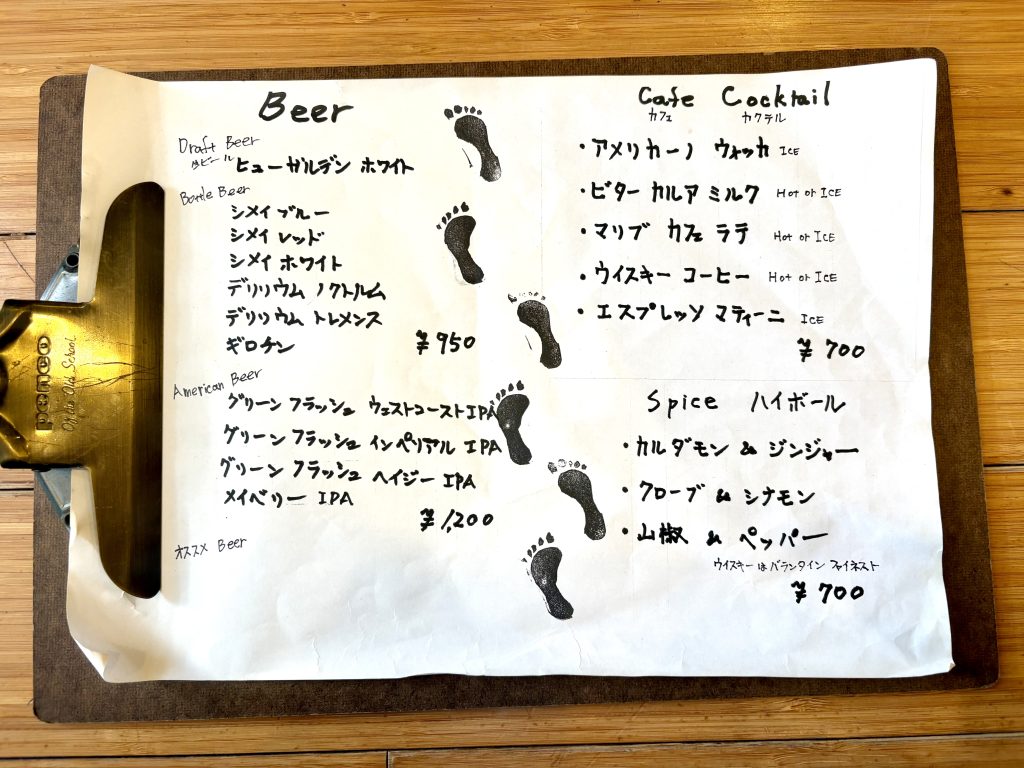 Beer
Draft Beer
生ビール
ヒューガルデン ホワイト
Bottle Beer
シメイ ブルー
シメイ レッド
シメイ ホワイト
デリリウム ノクトルム
デリリウム トレメンス
ギロチン ¥950
American Beer
グリーン フラッシュ ウェストコーストIPA
グリーン フラッシュ インペリアル IPA
グリーン フラッシュ ヘイジー IPA
メイベリー IPA
¥1,200
オススメ Beer
Cafe Cocktail
カフェ カクテル
・アメリカーノ ウォッカ ICE
・ビター カルア ミルク Hot or ICE
・マリブ カフェ ラテ Hot or ICE
・ウイスキー コーヒー Hot or ICE
・エスプレッソ マティーニ ICE
¥700
Spice ハイボール
・カルダモン & ジンジャー
・クローブ & シナモン
・山椒 & ペッパー
ウイスキーはバランタイン ファイネスト
¥700
penco
Old School